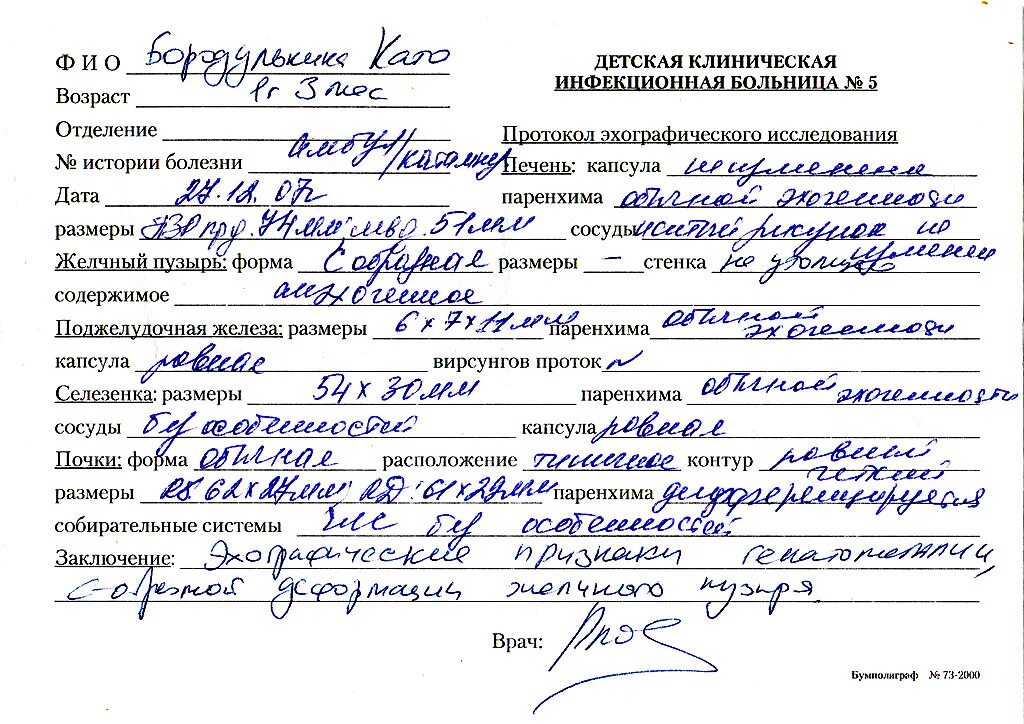 ФИО Бородулькина Като
ДЕТСКАЯ КЛИНИЧЕСКАЯ
ИНФЕКЦИОННАЯ БОЛЬНИЦА № 5
Возраст 1г 3 мес
Отделение
Протокол эхографического исследования
№ истории болезни амбул/катамнез
Печень: капсула не изменена
Дата 27.12.07г
паренхима обычной эхогенности
размеры ПЗР пр.д. 74мм л.д. 51мм сосуды рисунок не изменен
Желчный пузырь: форма С образная размеры – стенка не утолщена
содержимое анэхогенное
Поджелудочная железа: размеры 6х7х11мм паренхима обычной эхогенности
капсула ровная вирсунгов проток N
Селезенка: размеры 54х30мм паренхима обычной эхогенности
сосуды б/у особенностей капсула ровная
Почки: форма обычная расположение типичное контур ровный четкий
размеры RS 62х27мм; RD: 61х29мм паренхима дифференцируется
собирательные системы ЧЛС б/у особенностей
Заключение: Эхографические признаки гепатомегалии,
С-образной деформации желчного пузыря
Врач:
Бумполиграф № 73-2000